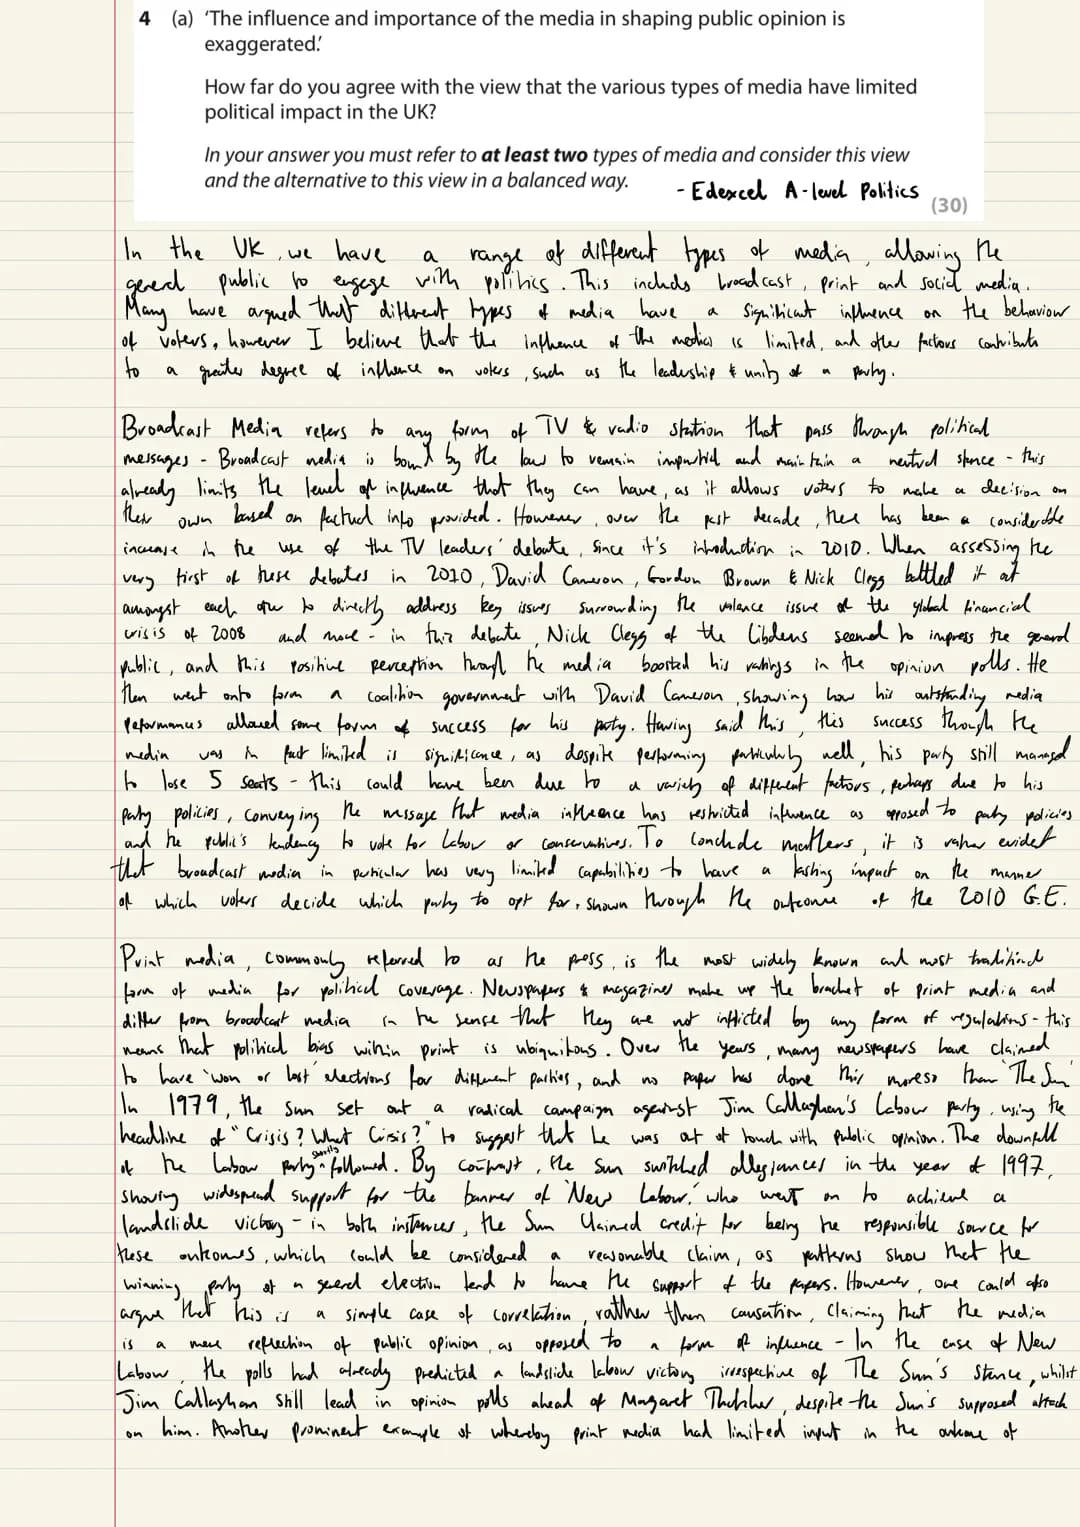 4 (a) ‘The influence and importance of the media in shaping public opinion is
exaggerated.’
How far do you agree with the view that the various types of media have limited
political impact in the UK?
In your answer you must refer to at least two types of media and consider this view
and the alternative to this view in a balanced way.
- Edexcel A-level Politics
(30)
In the UK, we have a range of different types of media, allowing the
general public to engage with politics. This includes broadcast, print and social media.
Many have argued that different types of media have a significant influence on the behaviour
of voters, however I believe that the influence of the media is limited, and other factors contribute
to a greater degree of influence on voters, such as the leadership & unity of a party.
Broadcast Media refers to any form of TV & radio station that pass through political
messages - Broadcast media is bound by the law to remain impartial and maintain a neutral stance - this
already limits the level of influence that they can have, as it allows voters to make a decision on
their own based on factual info provided. However, over the past decade, there has been a considerable
increase in the use of the TV leaders' debate, since it's introduction in 2010. When assessing the
very first of these debates in 2010, David Cameron, Gordon Brown & Nick Clegg battled it out
amongst each other to directly address key issues surrounding the valence issue of the global financial
crisis of 2008 and more - in this debate, Nick Clegg of the Libdems seemed to impress the general
public, and this positive perception through the media boosted his ratings in the opinion polls. He
then went onto form a coalition government with David Cameron, showing how his outstanding media
peformances allowed some form of success for his party. Having said this, this success though the
media was in fact limited is significance, as despite performing particularly well, his party still managed
to lose 5 seats - this could have been due to a variety of different factors, perhaps due to his
party policies, conveying the message that media influence has restricted influence as opposed to party policies
and the public's tendency to vote for Labour or conservatives. To conclude matters, it is rather evident
that broadcast media in particular has very limited capabilities to have a lasting impact on the manner
of which voters decide which party to opt for, shown through the outcome of the 2010 G.E.
Print media, commonly referred to as the press, is the most widely known and most traditional
form of media for political coverage. Newspapers & magazines make up the bracket of print media and
differ from broadcast media in the sense that they are not inflicted by any form of regulations - this
means that political bias within print is ubiquitous. Over the years, many newspapers have claimed
to have 'won or lost' elections for different parties, and no paper has done this moreso than 'The Sun'
In 1979, the Sun set out a radical campaign against Jim Callaghan's Labour party, using the
headline of "Crisis? What Crisis?" to suggest that he was out of touch with public opinion. The downfall
of the Labour party swiftly followed. By contrast, the Sun switched allegiances in the year of 1997,
showing widespread support for the banner of 'New Labour,' who went on to achieve a
landslide victory - in both instances, the Sun claimed credit for being the responsible source for
these outcomes, which could be considered a reasonable claim, as patterns show that the
winning party of a general election tend to have the support of the papers. However, one could also
argue that this is a simple case of correlation, rather than causation, claiming that the media
is a mere reflection of public opinion, as opposed to a form of influence - In the case of New
Labour, the polls had already predicted a landslide labour victory irrespective of The Sun's stance, whilst
Jim Callaghan still lead in opinion polls ahead of Margaret Thatcher, despite the Sun's supposed attack
on him. Another prominent example of whereby print media had limited input in the outcome of